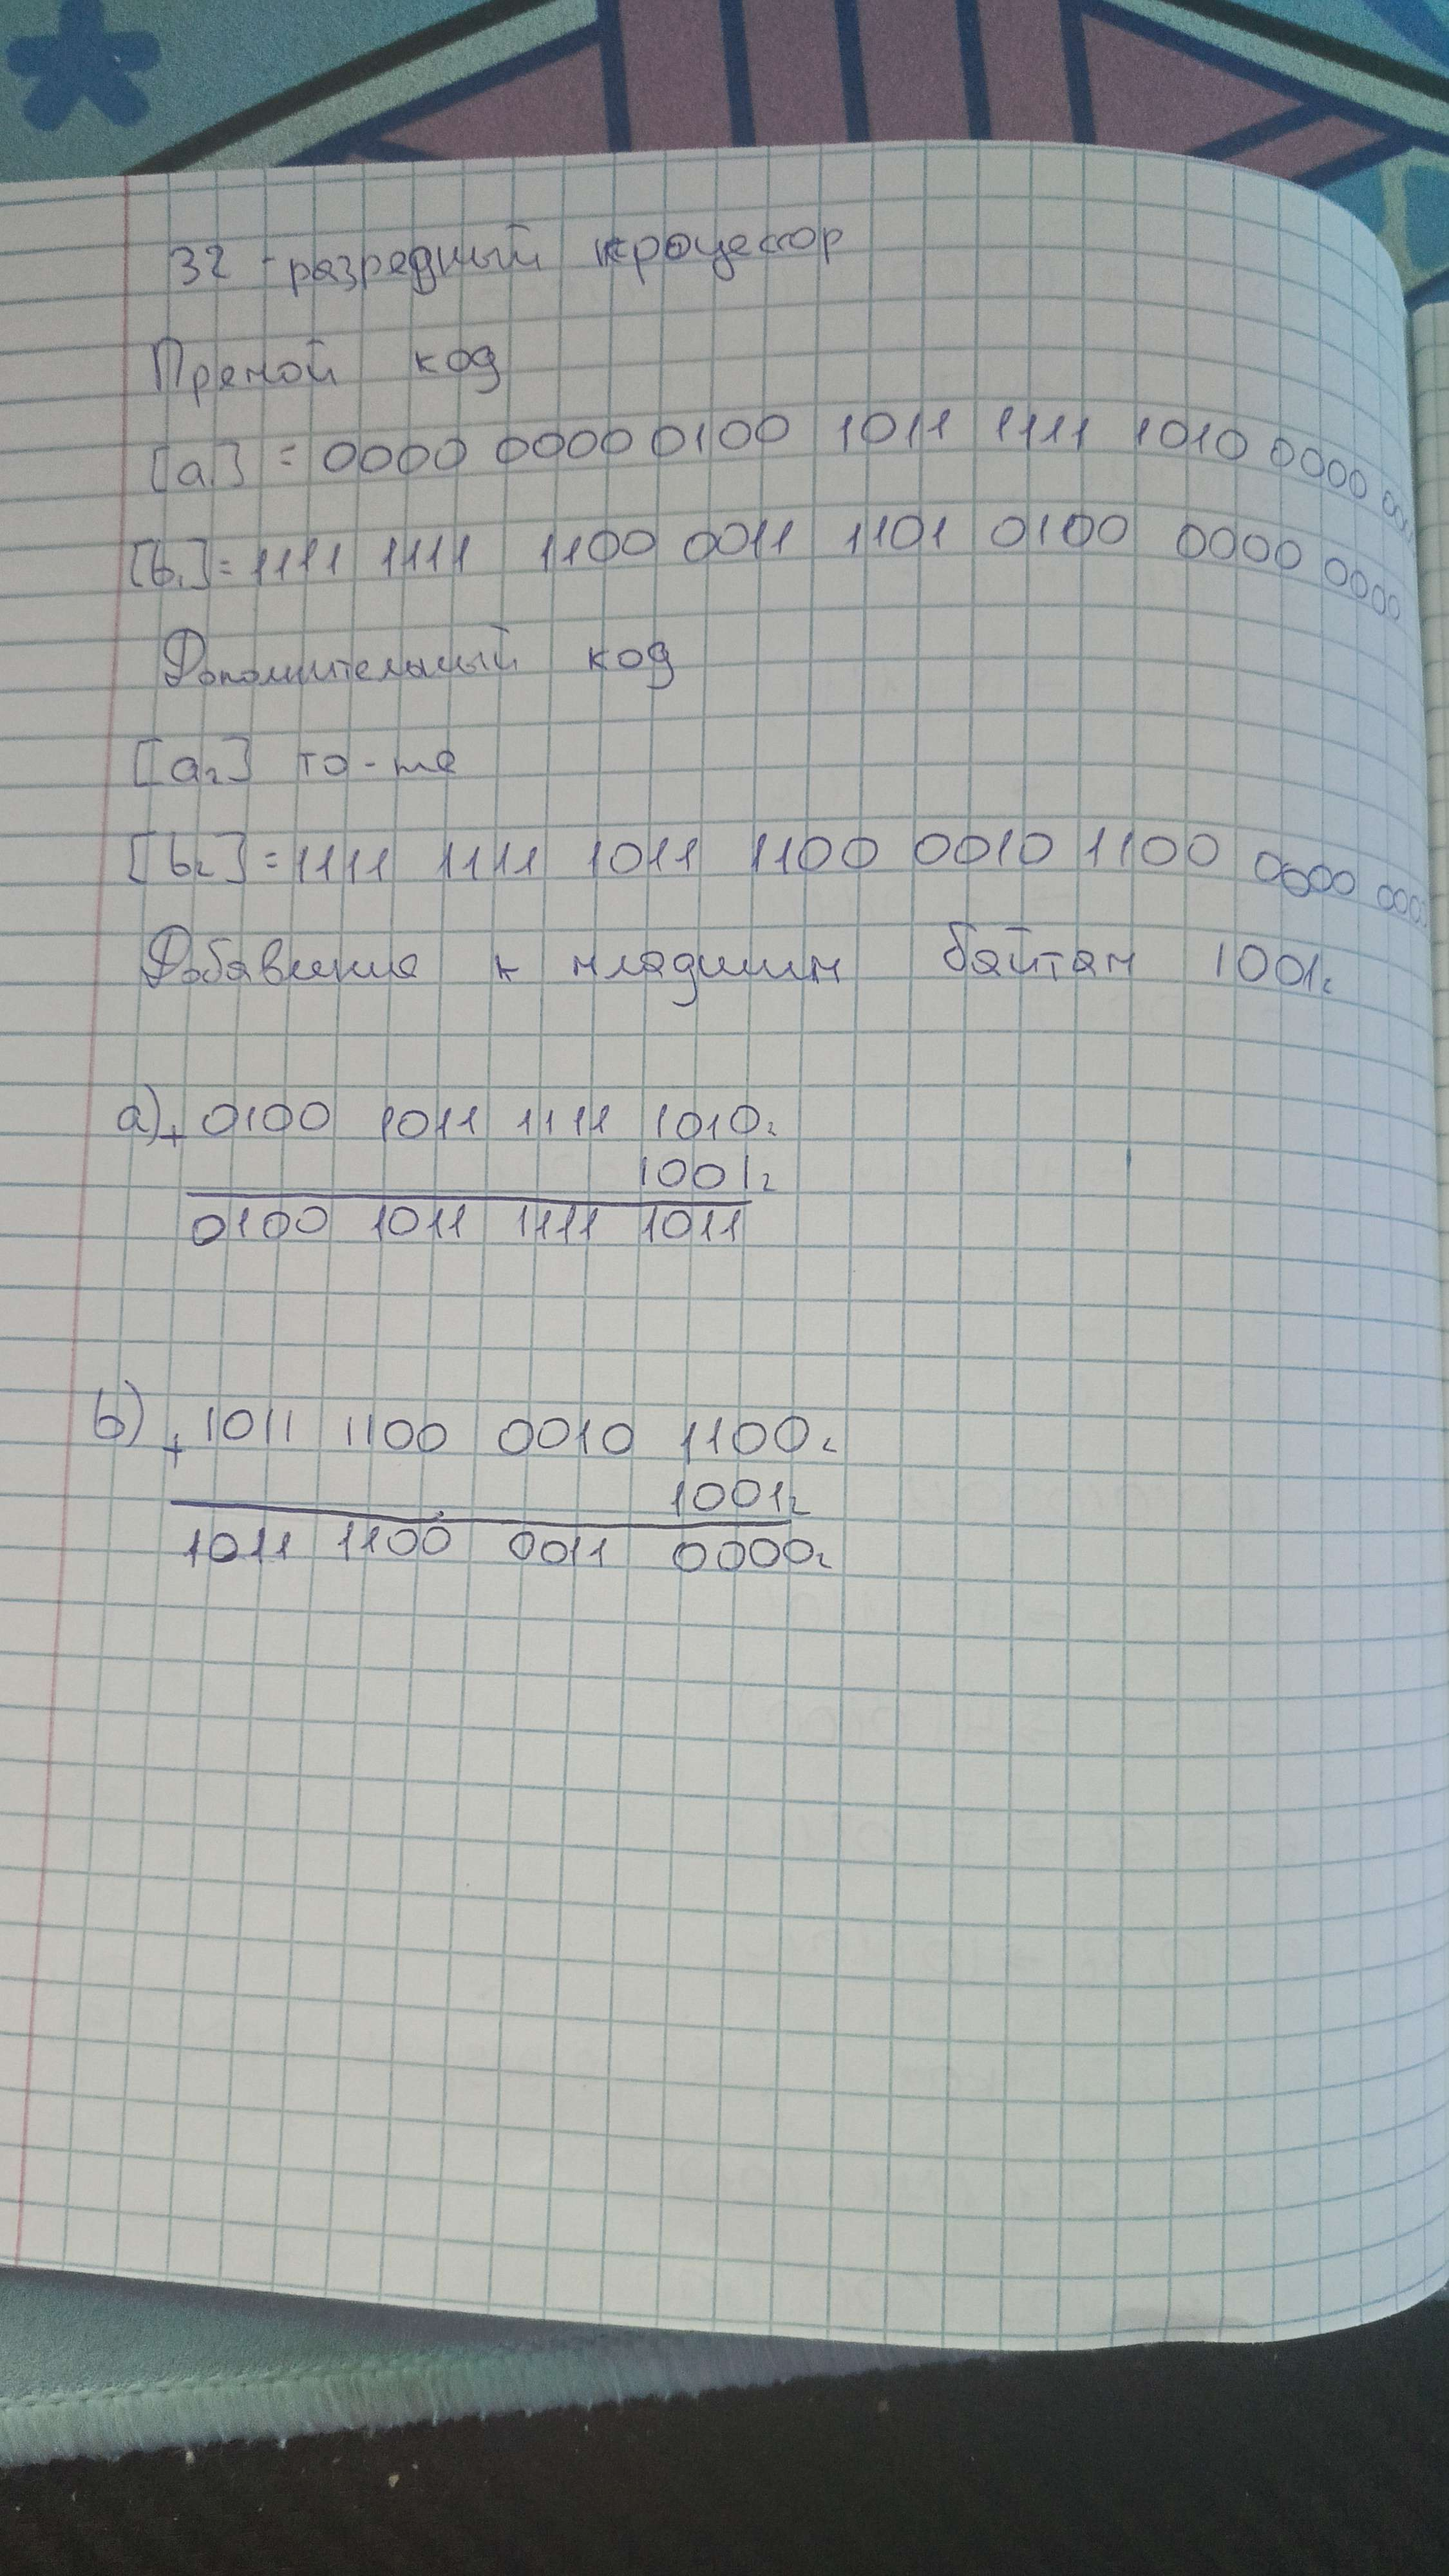 32 - разредный процессор
Премой код
[a₁] = 0000 0000 0100 1011 1111 1010 0000
[b₁] = 1111 1111 1100 0011 1101 0100 0000 0000
Дополнительный код
[a₂] то-же
[b₂] = 1111 1111 1011 1100 0010 1100 0000 000
Добавление к младшим байтам 1001₂
a) + 0100 1011 1111 1010₂
1001₂
0100 1011 1111 1011
b) + 1011 1100 0010 1100₂
1001₂
1011 1100 0011 0000₂